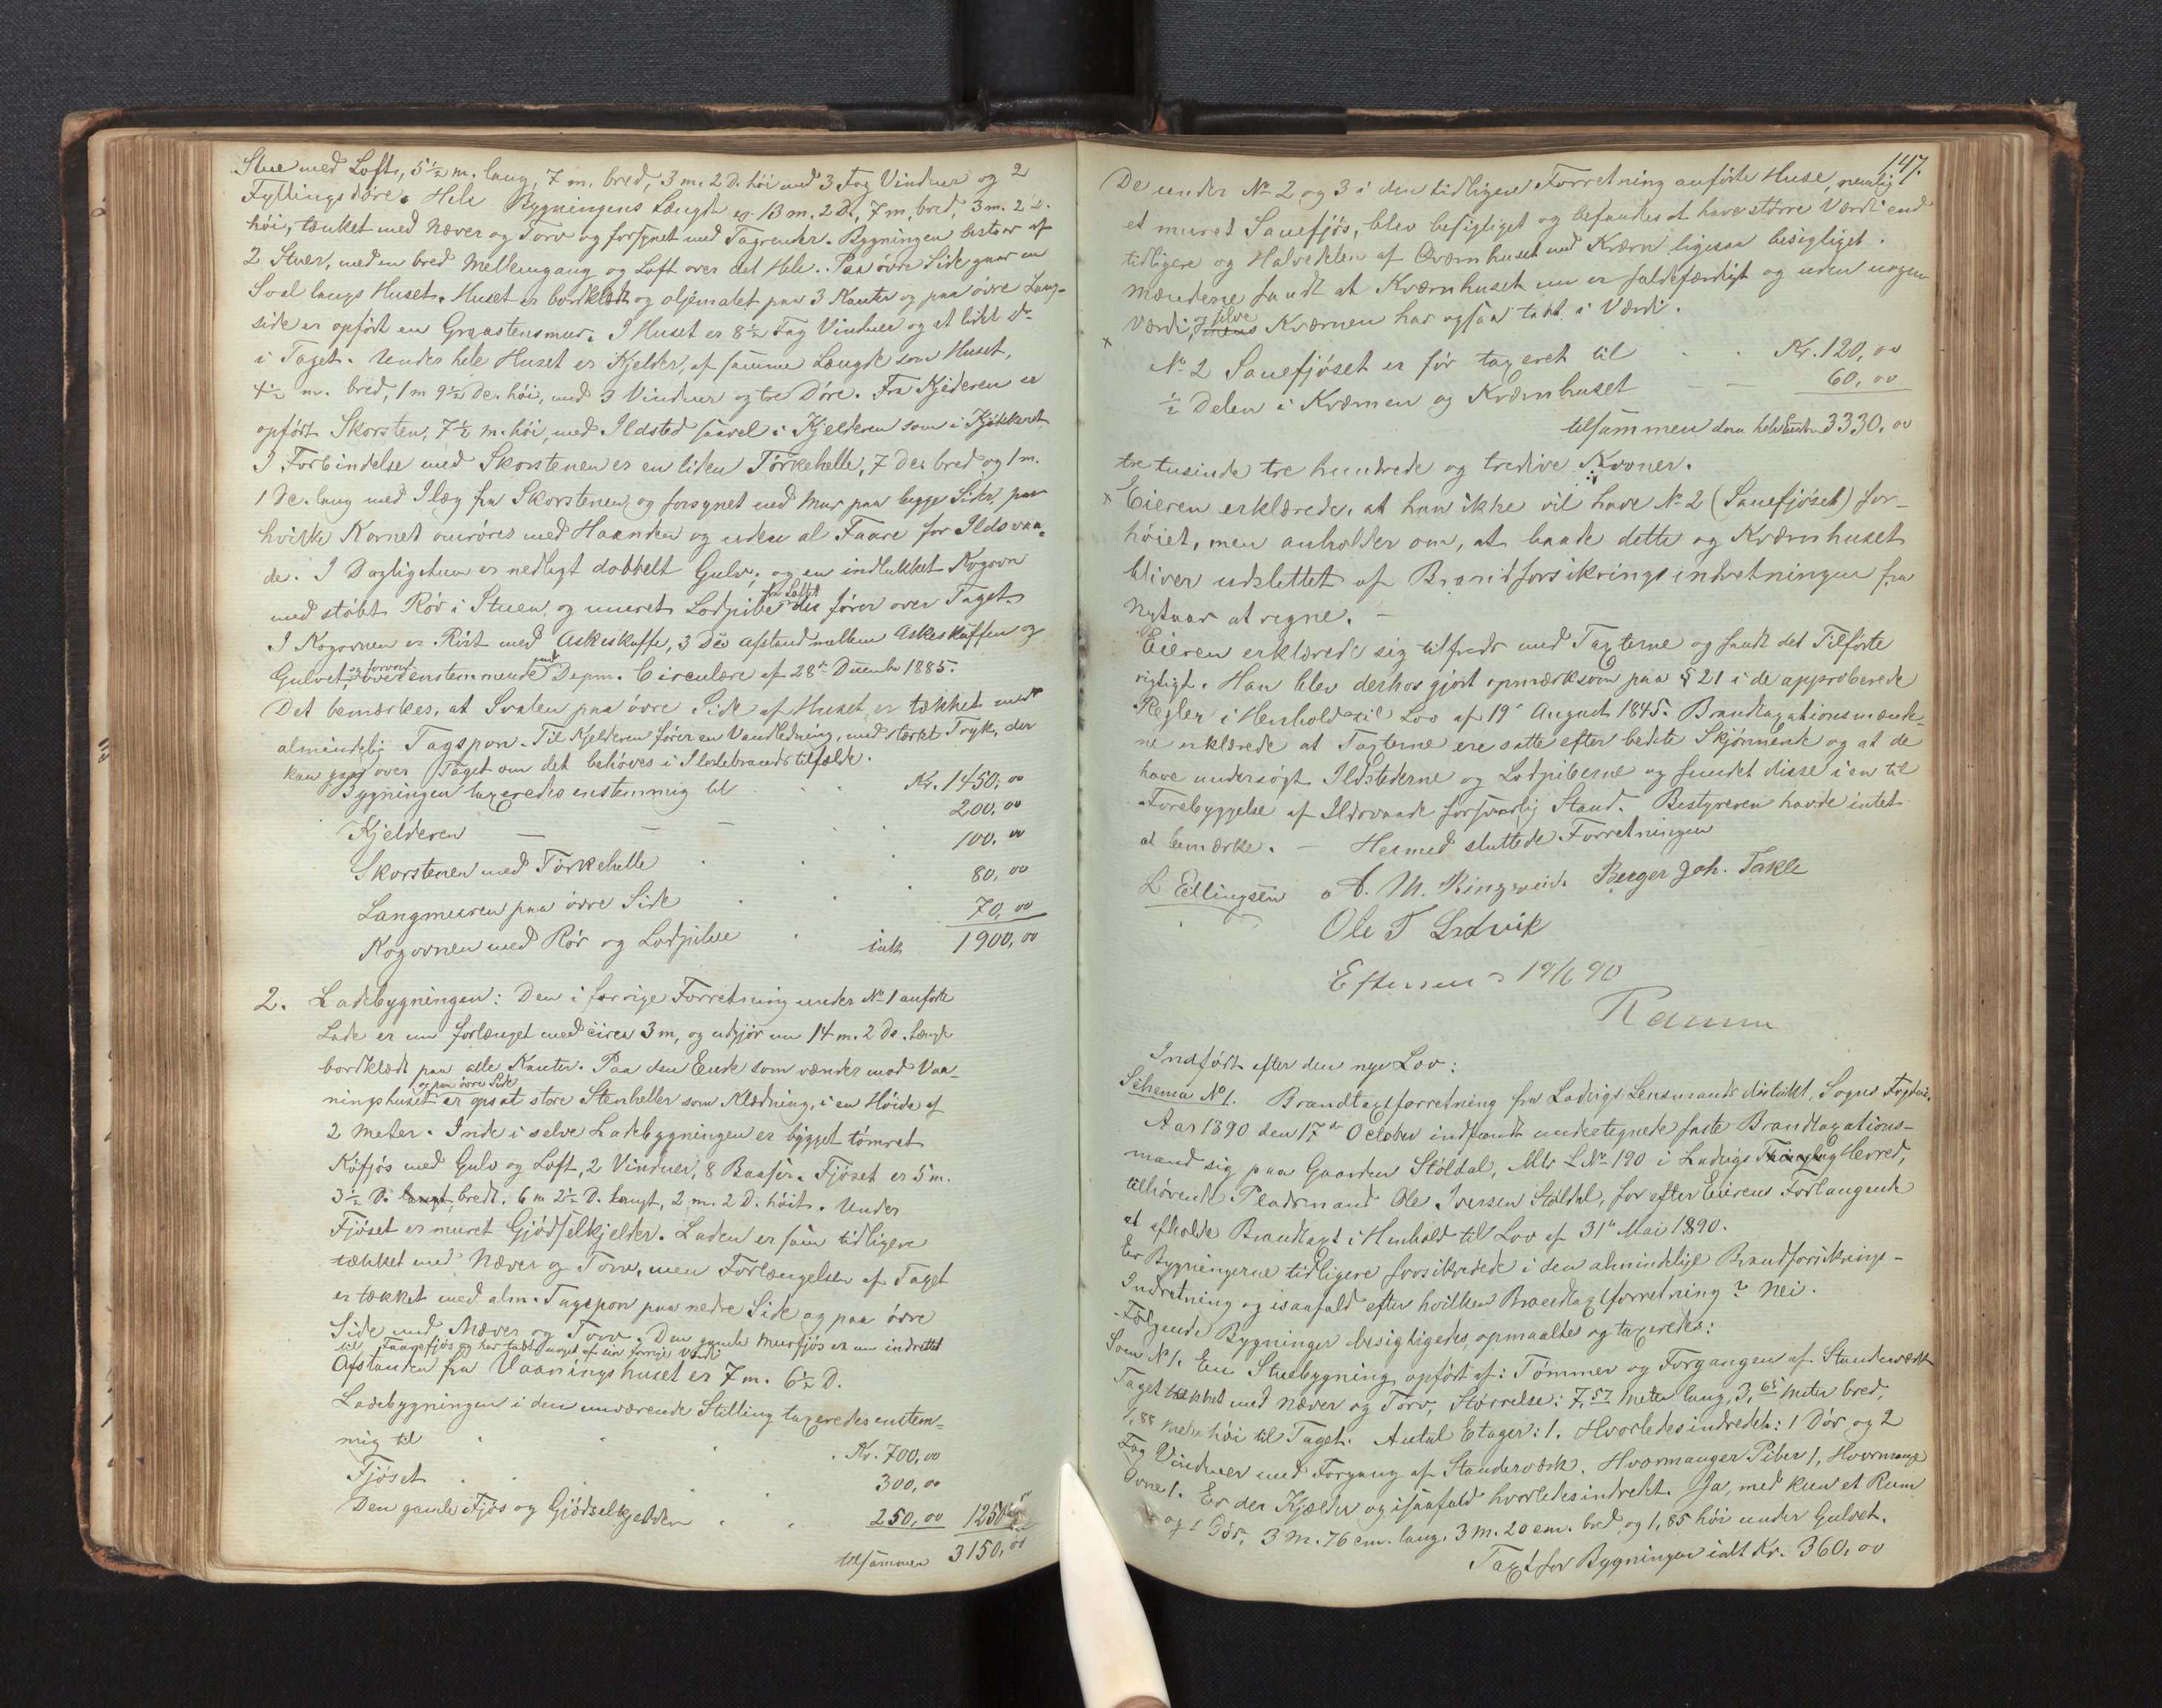 Stue med Loft, 5½ m. lang, 7 m. bred, 3 m. 2 D. höi med 3 Fag Vinduer og 2
Fyllingsdöre. Hele Bygningens Længde er 13 m. 2 D., 7 m. bred, 3 m. 2 D.
höi, tækket med Næver og Torv og forsynet med Tagrender. Bygningen bestaar af
2 Stuer, med en bred Mellemgang og Loft over det Hele. Paa övre Side gaar en
Sval langs Huset. Huset er bordklædt og oljemalet paa 3 Kanter og paa övre Lang-
side er opfört en Graastensmur. I Huset er 8½ Fag Vinduer og et lidet do
i Taget. Under hele Huset er Kjelder, af samme Længde som Huset,
4½ m. bred, 1 m 9½ De. höi, med 3 Vinduer og tre Döre. Fra Kjelderen er
opfört Skorsten, 7½ m. höi, med Ildsted saavel i Kjelderen som i Kjökkenet.
I Forbindelse med Skorstenen er en liden Törkehelle, 7 De. bred og 1 m.
1 De. lang med Ilæg fra Skorstenen, og forsynet med Mur paa begge Sider, paa
hvilke Kornet omröres med Haanden og uden al Faare for Ildsvaa-
de. I Dagligstuen er nedlagt dobbelt Gulv, og en indlukket Kogovn
med stöbt Rör i Stuen, og muret Lodpibe fra Loftet der förer over Taget.
I Kogovnen er Rist med Askeskuffe, 3 De Afstand mellem Askeskuffen og
Gulvet, og forøvrigt overensstemmende med Depm. Circulære af 28de December 1885.
Det bemærkes, at Svalen paa övre Side af Huset er tækket med
almindelig Tagspon. Til Kjelderen förer en Vandledning, med stærkt Tryk, der
kan gaa over Taget om det behöves i Ildebrandstilfælde.
Bygningen taxeredes enstemmig til Kr. 1450,00
Kjelderen — — — 200,00
Skorstenen med Törkehelle 100,00
Langmuren paa övre Side 80,00
Kogovnen med Rör og Lodpibe 70,00
ialt 1900,00
2. Ladebygningen: Den i forrige Forretning under No 1 anförte
Lade er nu forlænget med circa 3 m, og udgjör nu 14 m. 2 De. Længde
bordklædt paa alle Kanter. Paa den Ende som vender mod Vaa-
ningshuset og paa övre Side er opsat store Stenheller som Klædning, i en Höide af
2 Meter. Inde i selve Ladebygningen er bygget tömret
Köfjös med Gulv og Loft, 2 Vinduer, 8 Baaser. Fjöset er 5 m.
3½ D. langt, bredt. 6 m 2½ D. langt, 2 m. 2 D. höit. Under
Fjöset er muret Gjödselkjelder. Laden er som tidligere
tækket med Næver og Torv, men Forlængelsen af Taget
er tækket med alm. Tagspon paa nedre Side og paa övre
Side med Næver og Torv. Den gamle Murfjös er nu indrettet
til Faarefjös og har tabt noget af sin forrige Værdi
Afstanden fra Vaaningshuset er 7 m. 6½ D.
Ladebygningen i den nuværende Stilling taxeredes enstem-
mig til Kr. 700,00
Fjöset 300,00
Den gamle Fjös og Gjödselkjelder 250,00 1250
tilsammen 3150,00
147.
De under No 2 og 3 i den tidligere Forretning anförte Huse, nemlig
et muret Sauefjös, blev besigtiget og befandtes at have större Værdi end
tidligere og Halvdelen af Qværnhuset med Kværn ligesaa besigtiget.
Mændene fandt at Kværnhuset nu er faldefærdigt og uden nogen
Værdi, selve Kværnen har ogsaa tabt i Værdi.
x
No 2 Sauefjöset er för taxeret til Kr. 120,00
½ Delen i Kværnen og Kværnhuset — — 60,00
tilsammen 3330,00
tre tusinde tre hundrede og tredive Kroner.
x Eieren erklærede, at han ikke vil have No 2 (Sauefjöset) for-
höiet, men anholder om, at baade dette og Kværnhuset
bliver udslettet af Brandforsikringsindretningen fra
Nytaar at regne. —
Eieren erklærede sig tilfreds med Taxterne og fandt det Tilförte
rigtigt. Han blev derhos gjort opmærksom paa § 21 i de approberede
Regler i Henhold til Lov af 19de August 1845. Brandtaxationsmænde-
ne erklærede at Taxterne ere satte efter bedste Skjönnende og at de
have undersögt Ildstederne og Lodpiberne og fundet disse i en til
Forebyggelse af Ildsvaade forsvarlig Stand. Bestyreren havde intet
at bemærke. — Hermed sluttede Forretningen
L Ellingsen A. M. Ringereide Berger Joh. Takle
Ole T Ladvik
Efterseet 19/6 90
Ramm
Indfört efter den nye Lov:
Schema No 1. Brandtaxtforretning fra Ladvigs Lensmandsdistrikt, Sogns Fogderi.
Aar 1890 den 17de October indfandt undertegnede faste Brandtaxations-
mænd sig paa Gaarden Stöldal, Mtr L No 190 i Ladvigs Thinglag Herred,
tilhörende Pladsmand Ole Iversen Stöldal, for efter Eierens Forlangende
at afholde Brandtaxt i Henhold til Lov af 31te Mai 1890.
Er Bygningerne tidligere forsikrede i den almindelige Brandforsikrings-
Indretning og isaafald efter hvilken Brandtaxtforretning? Nei.
Fölgende Bygninger besigtigedes, opmaaltes og taxeredes:
Som No 1. En Stuebygning opfört af: Tömmer og Forgangen af Standerværk
Taget tækket med Næver og Torv, Störrelse: 7,57 Meter lang, 3,65 Meter bred,
1,88 Meter höi til Taget. Antal Etager: 1. Hvorledes indredet: 1 Dör og 2
Fag Vinduer med Forgang af Standerværk. Hvormange Piber 1, Hvormange
Ovne 1. Er der Kjælder og isaafald hvorledes indredet. Ja, med kun et Rum
og 1 Dör, 3 M. 76 cm. lang, 3 M. 20 cm. bred og 1,85 höi under Gulvet.
Taxt for Bygningen ialt Kr. 360,00